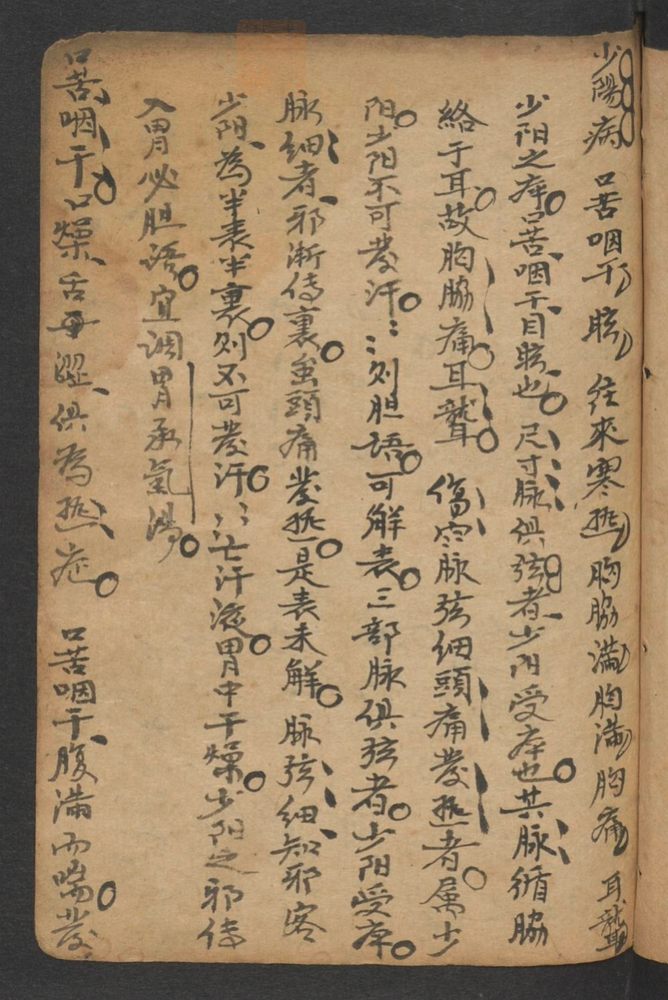 少陽病 口苦咽干 眩 往來寒热 胸脇滿 胸滿 胸痛 耳聾
少阳之病口苦咽干目眩也 尺寸脉俱弦者少阳受病也其脉循脇
絡于耳故胸脇痛耳聾 傷寒脉弦细頭痛發热者属少
阳少阳不可發汗〻〻则胆语可解表三部脉俱弦者少阳受病
脉细者邪渐传裏虽頭痛發热是表未解 脉弦细知邪客
少阳為半表半裏则不可發汗〻亡汗液胃中干燥少阳之邪传
入胃必胆语宜调胃承氣湯
口苦咽干口燥舌干涩俱為热症 口苦咽干腹滿而喘發